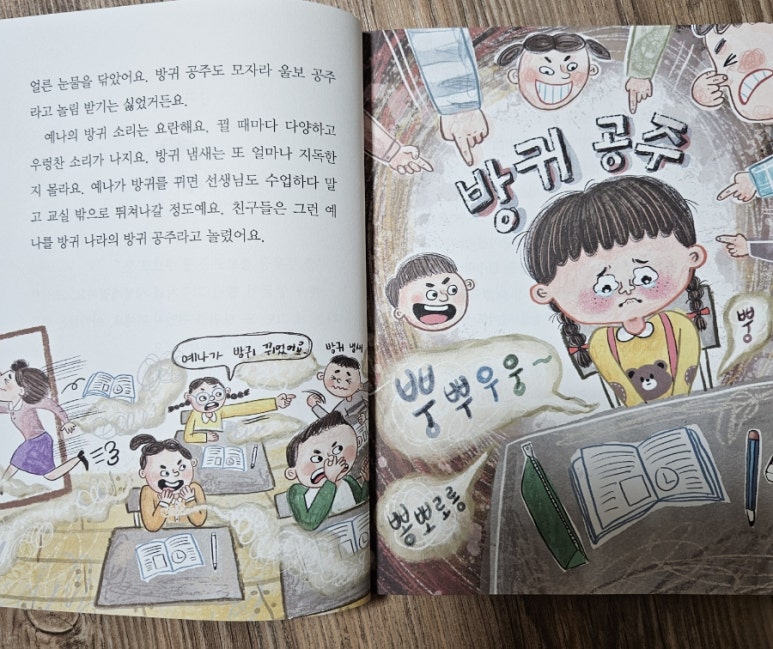 얼른 눈물을 닦았어요. 방귀 공주도 모자라 울보 공주
라고 놀림 받기는 싫었거든요.
예나의 방귀 소리는 요란해요. 뀔 때마다 다양하고
우렁찬 소리가 나지요. 방귀 냄새는 또 얼마나 지독한
지 몰라요. 예나가 방귀를 뀌면 선생님도 수업하다 말
고 교실 밖으로 뛰쳐나갈 정도예요. 친구들은 그런 예
나를 방귀 나라의 방귀 공주라고 놀렸어요.
예나가 방귀 뀌었어요.
방귀 냄새
방귀 공주
뿡
뿡 뿌우웅~
뽕뽀로롱